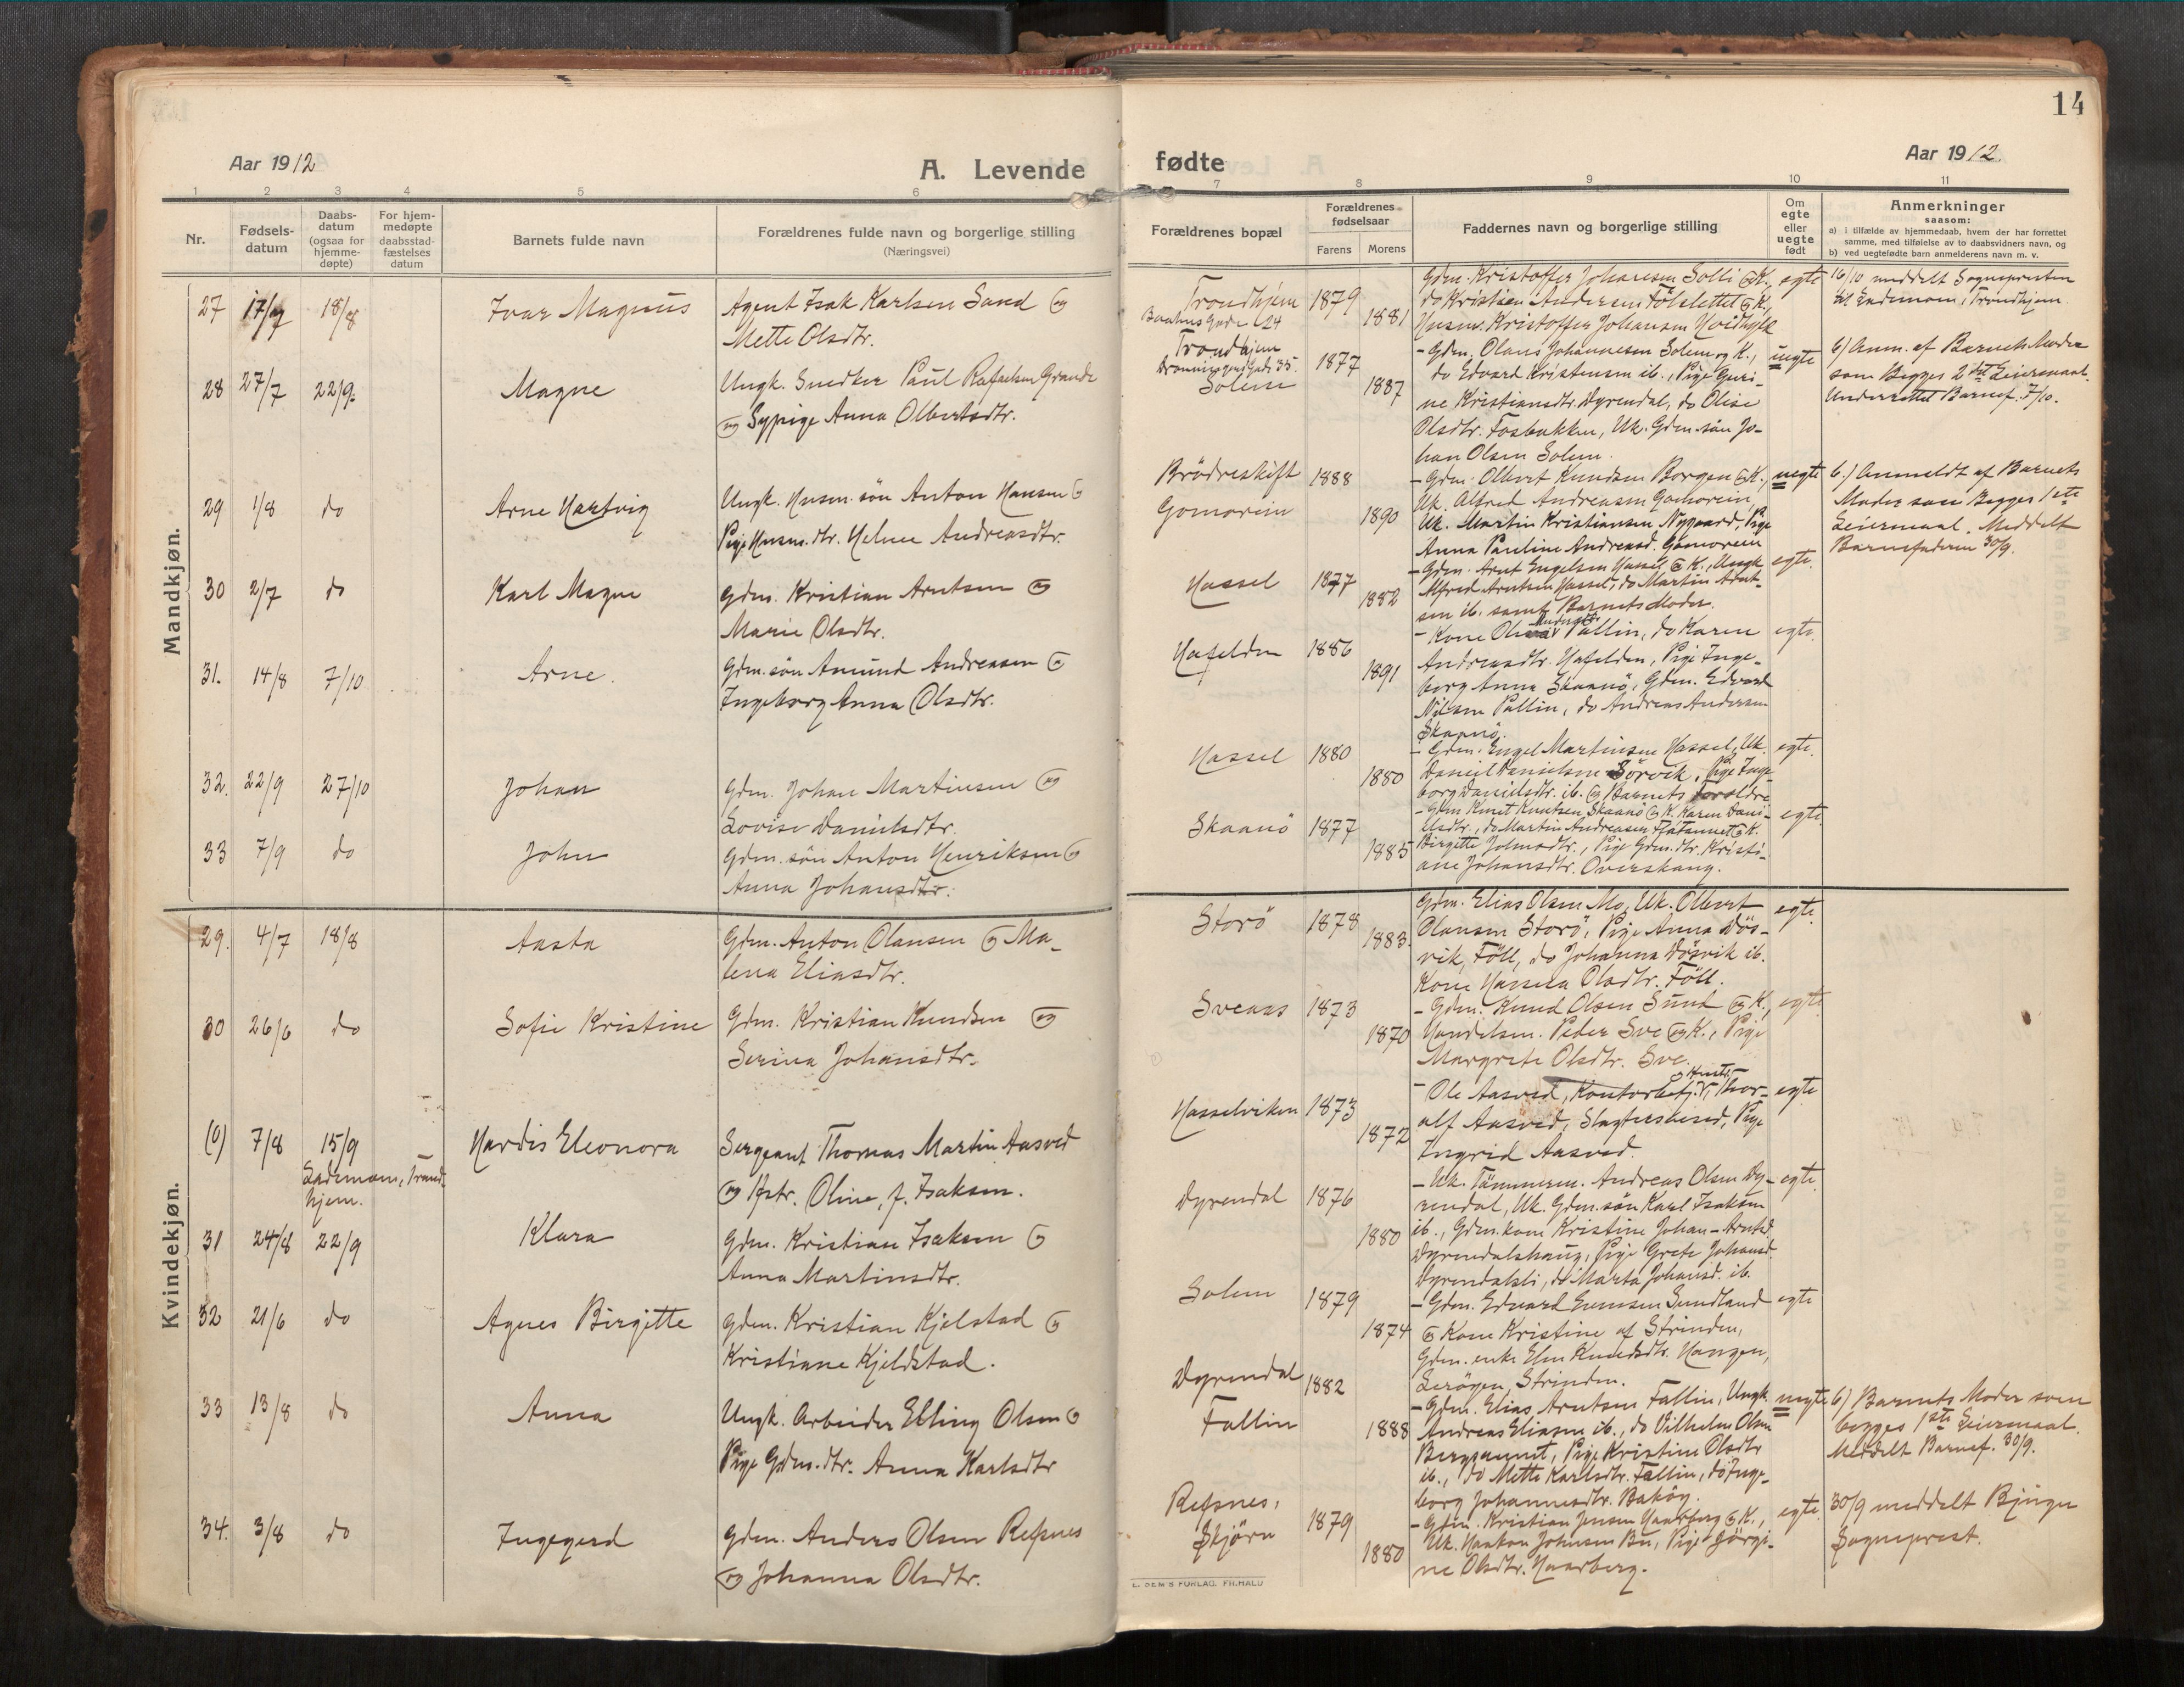 14
Aar 1912
A. Levende
fødte
Aar 1912.
1 2 3 4 5 6 7 8 9 10 11
Nr.
Fødsels-
datum
Daabs-
datum
(ogsaa for
hjemme-
døpte)
For hjem-
medøpte
daabsstad-
fæstelses
datum
Barnets fulde navn
Forældrenes fulde navn og borgerlige stilling
(Næringsvei)
Forældrenes bopæl
Forældrenes
fødselsaar
Farens Morens
Faddernes navn og borgerlige stilling
Om
egte
eller
uegte
født
Anmerkninger
saasom:
a) i tilfælde av hjemmedaab, hvem der har forrettet
samme, med tilføielse av to daabsvidners navn, og
b) ved uegtefødte barn anmelderens navn m. v.
Mandkjøn.
27 17/7 18/8 Ivar Magnus
Agent Isak Karlsen Sand og
Mette Olsdtr.
Trondhjem
Baahus Gade 24
1879 1881
Gdm. Kristoffer Johansen Solli og K.,
do Kristian Andersen Fölslettet og K,
Husm. Kristoffer Johansen
egte
16/10 meddelt Sognepresten
til Lademoen, Trondhjem.
28 27/7 22/9. Magne
Ungk. Snedker Paul Rafaelsen Grande
og Sypige Anna Olbertsdtr.
Trondhjem
Dronningens Gade 35.
Solem
1877 1887
- Gdm. Olaus Johannesen Solem og K.,
do Edvard Kristensen ib., Pige Guri-
ne Kristiansdtr. Dyrendal, do Olise
Olsdtr. Fosbakken, Uk. Gdm. søn Jo-
han Olsen Solem.
uegte
b) Anm. af Barnets Moder
som Begges 2det Leiermaal.
Underrettet Barnef. 7/10.
29 1/8 do Arne Hartvig
Ungk. Husm. søn Anton Hansen og
Pige Husm. dtr. Helene Andreasdtr.
Brödreskift
Gomorein
1888 1890
- Gdm. Olbert Knudsen Borgen og K.,
Uk. Alfred Andreasen Gomorein,
Uk. Martin Kristiansen Nygaard, Pige
Anna Pauline Andreasd. Gomorein
uegte
b.) Anmeldt af Barnets
Moder som Begges 1ste
Leiermaal. Meddelt
Barnefaderen 30/9.
30 2/7 do Karl Magne
Gdm. Kristian Arntsen og
Marie Olsdtr.
Hassel
1877 1882
- Gdm. Arnt Engelsen Hassel og K., Ungk
Alfred Arntsen Hassel, do Martin Arnt-
sen ib. samt Barnets Moder.
egte.
31. 14/8 7/10 Arne.
Gdm. søn Amund Andreasen og
Ingeborg Anna Olsdtr.
Hafelden
1886 1891
- Kone Pallin, do Karen
Andreasdtr. Hafelden, Pige Inge-
borg Anna Skaanö, Gdm. Edvard
Nilsen Pallin, do Andreas Andersen
Skaanö.
egte.
32. 22/9 27/10 Johan
Gdm. Johan Martinsen og
Lovise Danielsdtr.
Hassel
1880 1880
- Gdm. Engel Martinsen Hassel, Uk.
Daniel Danielsen Sörvik, Pige Inge-
borg Danielsdtr. ib. og Barnets Foreldre
egte.
33 7/9 do John
Gdm. søn Anton Henriksen og
Anna Johansdtr.
Skaanö
1877 1885
- Gdm Knut Knutsen Skaanö og K. Karen Dani-
elsdtr., do Martin Andreasen og K.
Birgitte Johnsdtr., Pige Gdm. dtr. Kristi-
ane Johansdtr. Overskaug.
egte.
Kvindekjøn.
29. 4/7 18/8 Aasta
Gdm. Anton Olausen og Ma-
lena Eliasdtr.
Storö
1878 1883.
Gdm. Elias Olsen Mo, Uk. Olbert
Olausen Storö, Pige Anna Dös-
vik, Föll, do Johanna Dösvik ib.
Kone Hansena Olsdtr. Föll.
egte.
30 26/6 do Sofie Kristine
Gdm. Kristian Knudsen og
Serina Johansdtr.
Sveaas
1873 1870
- Gdm. Knud Olsen Sund og K.,
Handelsm. Peder Sve og K., Pige
Margrete Olsdtr. Sve.
egte.
(0) 7/8 15/9
Lademoen, Trond-
hjem.
Hardis Eleonora
Sergeant Thomas Martin Aasved
og Hstr. Oline, f. Isaksen.
Hasselviken
1873 1872
- Ole Aasved, Kontorbetj. og Hustr., Thor-
alf Aasved, Slagtersvend, Pige
Ingrid Aasved.
egte
31 24/8 22/9 Klara
Gdm. Kristian Isaksen og
Anna Martinsdtr.
Dyrendal
1876 1880
- Uk. Tömmerm. Andreas Olsen Dy-
rendal, Uk. Gdm. søn Karl Isaksen
ib., Gdm. kone Kristine Johan-Arntsd.
Dyrendalshaug, Pige Grete Johansd.
Dyrendalsli, do Marta Johansd. ib.
egte.
32 21/6 do Agnes Birgitte
Gdm. Kristian Kjelstad og
Kristiane Kjeldstad.
Solem
1879 1874
- Gdm. Edvard Evensen Sundland
og Kone Kristine af Strinden,
Gdm. enke Elen Knudsdtr. Haugen,
Strinden.
egte
33 13/8 do Anna
Ungk. Arbeider Elling Olsen og
Pige Gdm. dtr. Anna Karlsdtr
Dyrendal
Fallin
1882 1888
- Gdm. Elias Arntsen Fallin, Ungk.
Andreas Eliasen ib., do Vilhelm Olsen
Bergsaunet, Pige Kristine Olsdtr
ib., do Mette Karlsdtr. Fallin, do Inge-
borg Johannesdtr. Baköy.
uegte
b) Barnets Moder som
begges 1ste Leiermaal.
Meddelt Barnef. 30/9.
34. 3/8 do Ingegerd
Gdm. Anders Olsen Refsnes
og Johanna Olsdtr.
Refsnes,
Skjörn
1879 1880
- Gdm. Kristian Jensen Haarberg og K.,
Uk. Haakon Johnsen Bu, Pige Görgi-
ne Olsdtr. Haarberg.
egte.
30/9 meddelt Bjugn
Sogneprest.